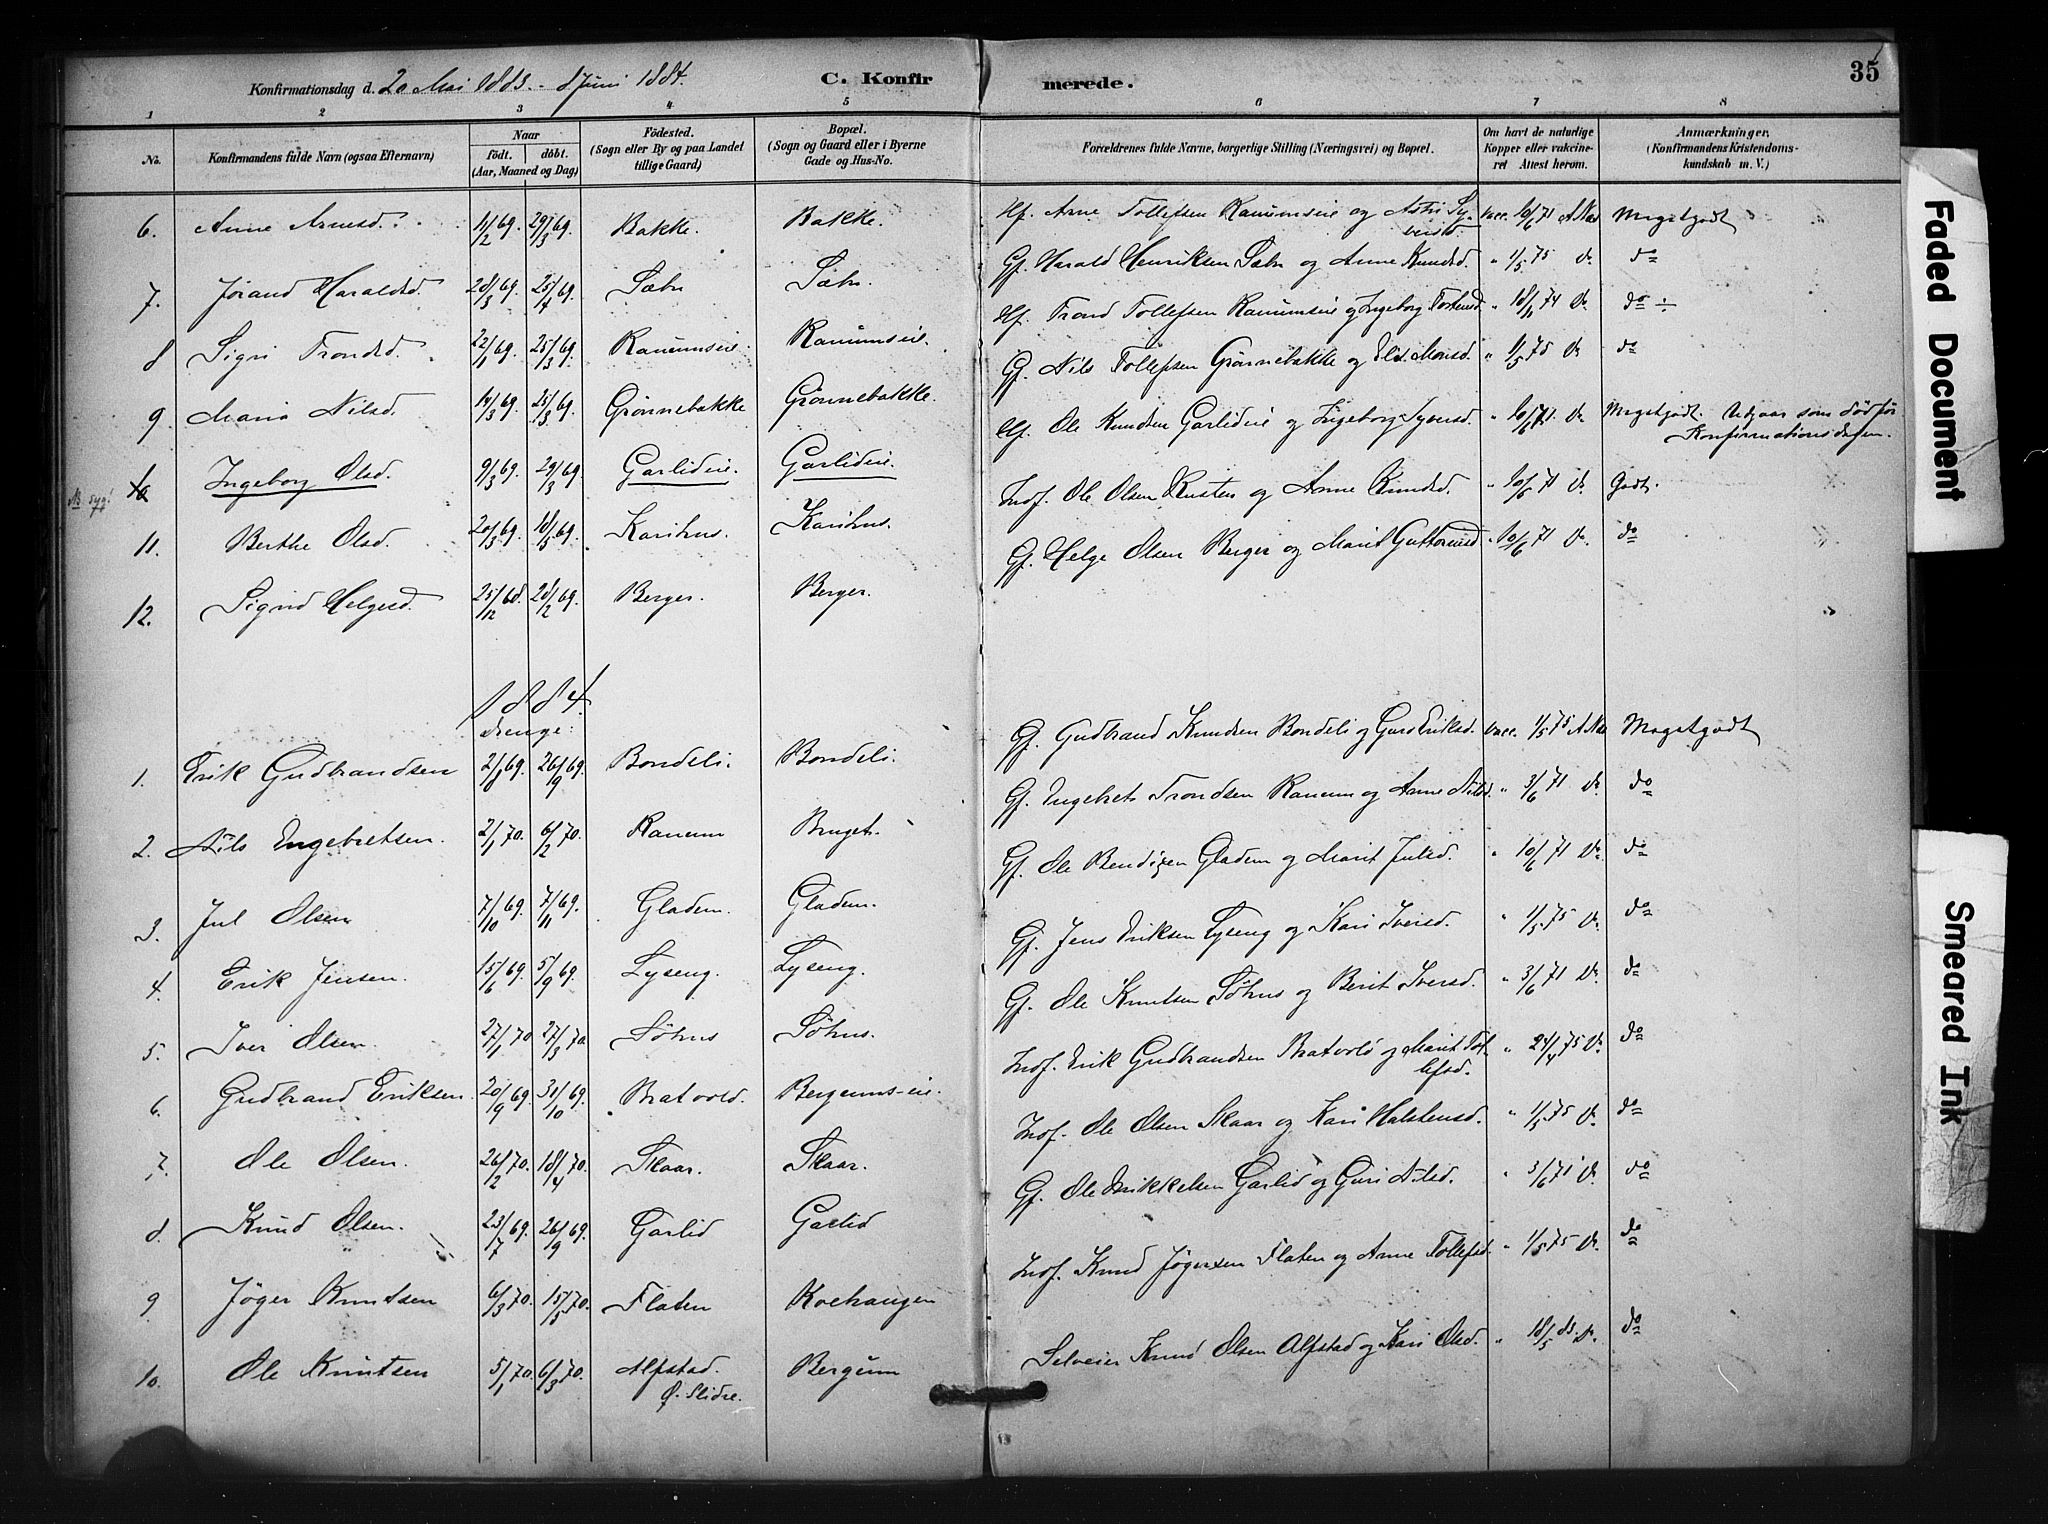 Konfirmationsdag d. 20 Mai 1883. - 8 Juni 1884.
C. Konfir
merede.
35
1 2 3 4 5 6 7 8
No.
Konfirmandens fulde Navn (ogsaa Efternavn)
Naar
født. døbt.
(Aar, Maaned og Dag)
Födested.
(Sogn eller By og paa Landet
tillige Gaard)
Bopæl.
(Sogn og Gaard eller i Byerne
Gade og Hus-No.
Forældrenes fulde Navne, borgerlige Stilling (Næringsvei) og Bopæl.
Om havt de naturlige
Kopper eller vakcine-
ret Attest herom.
Anmærkninger.
(Konfirmandens Kristendoms-
kundskab m. V.)
6. Anne Arnesd. 11/2 69. 29/3 69. Bakke. Bakke. Hf. Arne Tollefsen Ranumseie og Astri Sy-
versd. vacc. 10/6 71 A. Næs Megetgodt
7. Jørand Haraldsd. 28/3 69. 25/4 69. Sæbr Sæbr. Gf. Harald Henriksen Sæbr og Anne Knudsd. " 1/5 75 Do do
8 Sigri Trondsd. 22/1 69. 25/3 69. Ranumseie. Ranumseie. Hf. Trond Tollefsen Ranumseie og Ingeborg Torstensd. " 18/11 74 Do do ÷
9. Maria Nilsd. 14/3 69. 25/3 69. Grönnebakke Grönnebakke. Gf. Nils Tollefsen Grönnebakke og Elis. Monsd. " 1/5 75 Do do
10 Ingeborg Olsd. 9/3 69. 29/3 69. Garlideie. Garlideie. Hf. Ole Knudsen Garlideie og Ingeborg Syversd. " 10/6 71. Do Megetgodt. Udgaar som død før
Konfirmationsdagen.
11. Berthe Olsd. 20/3 69. 18/5 69. Karihus. Karihus. Indf. Ole Olsen Rusten og Anne Knudsd. " 10/6 71 Do. Godt.
12. Sigrid Helgesd. 25/12 68. 28/2 69. Berger. Berger. Gf. Helge Olsen Berger og Marit Guttormsd " 10/6 71 Do. do
1884.
Drenge:
1. Erik Gudbrandsen 2/8 69. 26/9 69. Bondeli. Bondeli. Gf. Gudbrand Knudsen Bondeli og Guro Eriksd. vacc. 1/5 75 A. Næs Megetgodt
2. Nils Engebretsen. 2/1 70. 6/2 70. Ranum Bruget. Gf. Engebret Trondsen Ranum og Anne Nilsd. " 3/6 71 Do. do
3. Jul Olsen 7/10 69. 7/11 69. Gladem. Gladem. Gf. Ole Bendixen Gladem og Marit Julsd. " 10/6 71 Do. do
4. Erik Jensen. 15/6 69. 5/9 69. Lyseng. Lyseng. Gf. Jens Eriksen Lyseng og Kari Iversd. " 1/5 75 Do. do
5. Iver Olsen. 27/1 70 27/3 70. Söhus Söhus. Gf. Ole Knutsen Söhus og Berit Iversd. " 3/6 71 Do. do
6. Gudbrand Eriksen. 20/9 69. 31/10 69. Bratvold. Bergums-eie. Indf. Erik Gudbrandsen Bratvold og Marit Tol-
lefsd. " 24/4 75 Do. do
7. Ole Olsen. 26/2 70. 18/4 70. Skaar. Skaar. Indf. Ole Olsen Skaar og Kari Halstensd. " 1/5 75 Do. do
8. Knud Olsen. 23/7 69. 26/9 69. Garlid Garlid Gf. Ole Mikkelsen Garlid og Guri Nilsd. " 3/6 71 Do. do
9 Jöger Knutsen 6/3 70. 15/5 70. Flaten Kochaugen Indf. Knud Jögersen Flaten og Anne Tollefsd. " 1/5 75 Do. do
10. Ole Knutsen 5/1 70. 6/3 70. Alfstad. Bergum Selveier Knud Olsen Alfstad og Kari Olsd. " 18/5 83. Do. do
Ø. Slidre.
Faded Document
Smeared Ink